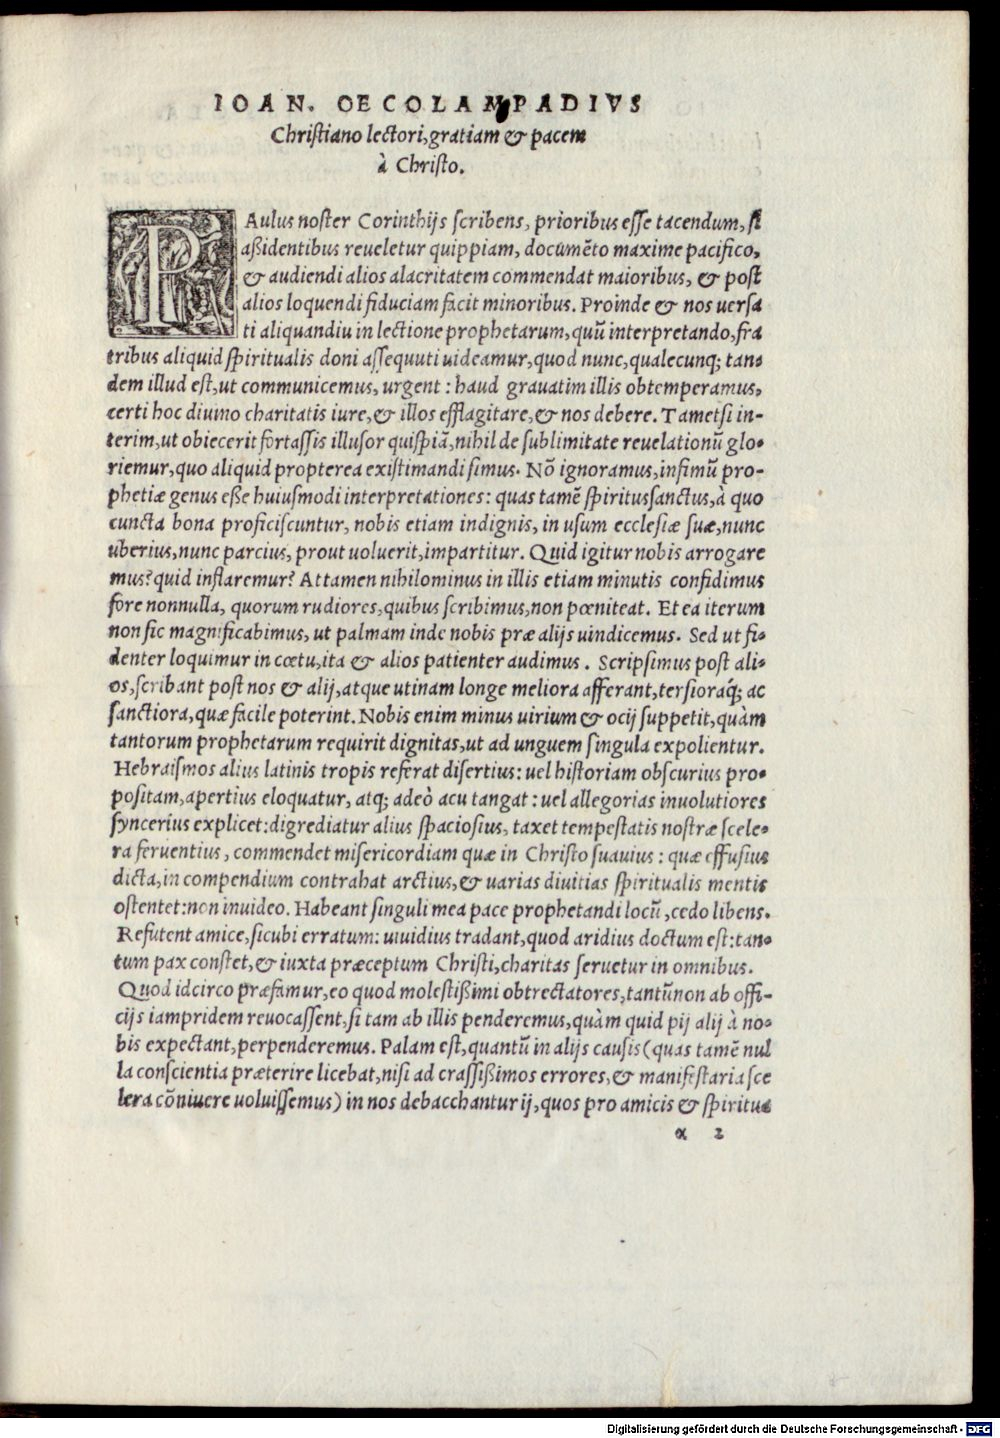 IOAN. OECOLAMPADIVS
Christiano lectori, gratiam & pacem
à Christo.
PAulus noster Corinthijs scribens, prioribus esse tacendum, si
aßidentibus reueletur quippiam, documēto maxime pacifico,
& audiendi alios alacritatem commendat maioribus, & post
alios loquendi fiduciam facit minoribus. Proinde & nos uersa
ti aliquandiu in lectione prophetarum, quū interpretando, fra
tribus aliquid spiritualis doni assequuti uideamur, quod nunc, qualecunq; tan-
dem illud est, ut communicemus, urgent: haud grauatim illis obtemperamus,
certi hoc diuino charitatis iure, & illos efflagitare, & nos debere. Tametsi in-
terim, ut obiecerit fortassis illusor quispiā, nihil de sublimitate reuelationū glo-
riemur, quo aliquid propterea existimandi simus. Nō ignoramus, infimū pro-
phetiæ genus eße huiusmodi interpretationes: quas tamē spiritussanctus, à quo
cuncta bona proficiscuntur, nobis etiam indignis, in usum ecclesiæ suæ, nunc
uberius, nunc parcius, prout uoluerit, impartitur. Quid igitur nobis arrogare
mus? quid inflaremur? Attamen nihilominus in illis etiam minutis confidimus
fore nonnulla, quorum rudiores, quibus scribimus, non pœniteat. Et ea iterum
non sic magnificabimus, ut palmam inde nobis præ alijs uindicemus. Sed ut fi-
denter loquimur in cœtu, ita & alios patienter audimus. Scripsimus post ali-
os, scribant post nos & alij, atque utinam longe meliora afferant, tersioraq́; ac
sanctiora, quæ facile poterint. Nobis enim minus uirium & ocij suppetit, quàm
tantorum prophetarum requirit dignitas, ut ad unguem singula expolientur.
Hebraismos alius latinis tropis referat disertius: uel historiam obscurius pro-
positam, apertius eloquatur, atq; adeò acu tangat: uel allegorias inuolutiores
syncerius explicet: digrediatur alius spaciosius, taxet tempestatis nostræ scele-
ra feruentius, commendet misericordiam quæ in Christo suauius: quæ effusius
dicta, in compendium contrahat arctius, & uarias diuitias spiritualis mentis
ostentet: non inuideo. Habeant singuli mea pace prophetandi locū, cedo libens.
Refutent amice, sicubi erratum: uiuidius tradant, quod aridius doctum est: tan-
tum pax constet, & iuxta præceptum Christi, charitas seruetur in omnibus.
Quod idcirco præfamur, eo quod molestißimi obtrectatores, tantūnon ab offi-
cijs iampridem reuocassent, si tam ab illis penderemus, quàm quid pij alij à no-
bis expectant, perpenderemus. Palam est, quantū in alijs causis (quas tamē nul
la conscientia præterire licebat, nisi ad crassißimos errores, & manifestaria sce
lera cōniuere uoluissemus) in nos debacchantur ij, quos pro amicis & spiritua
α 2
Digitalisierung gefördert durch die Deutsche Forschungsgemeinschaft - DFG